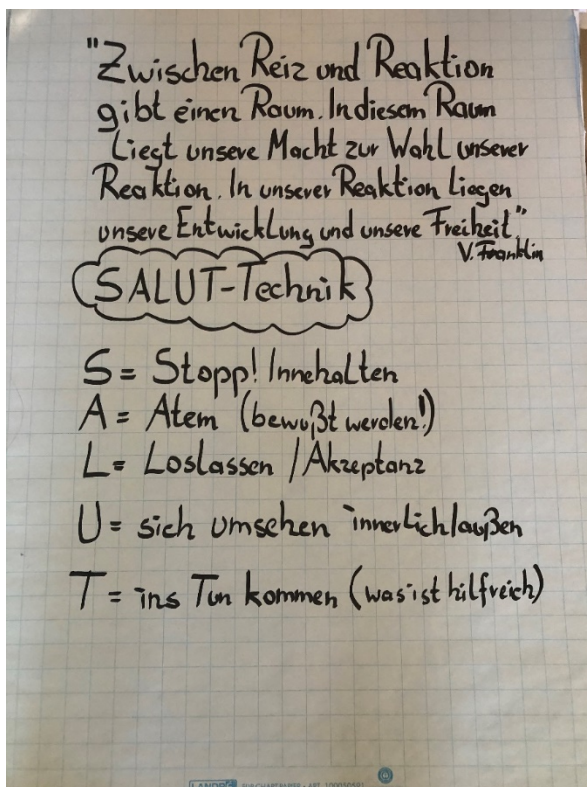 "Zwischen Reiz und Reaktion
gibt einen Raum. In diesem Raum
liegt unsere Macht zur Wahl unserer
Reaktion. In unserer Reaktion liegen
unsere Entwicklung und unsere Freiheit"
V. Franklin
SALUT-Technik
S = Stopp! Innehalten
A = Atem (bewußt werden!)
L = Loslassen / Akzeptanz
U = sich umsehen innerlich/außen
T = ins Tun kommen (was ist hilfreich)
LANDRÉ FLIPCHARTPAPIER - ART. 100050591